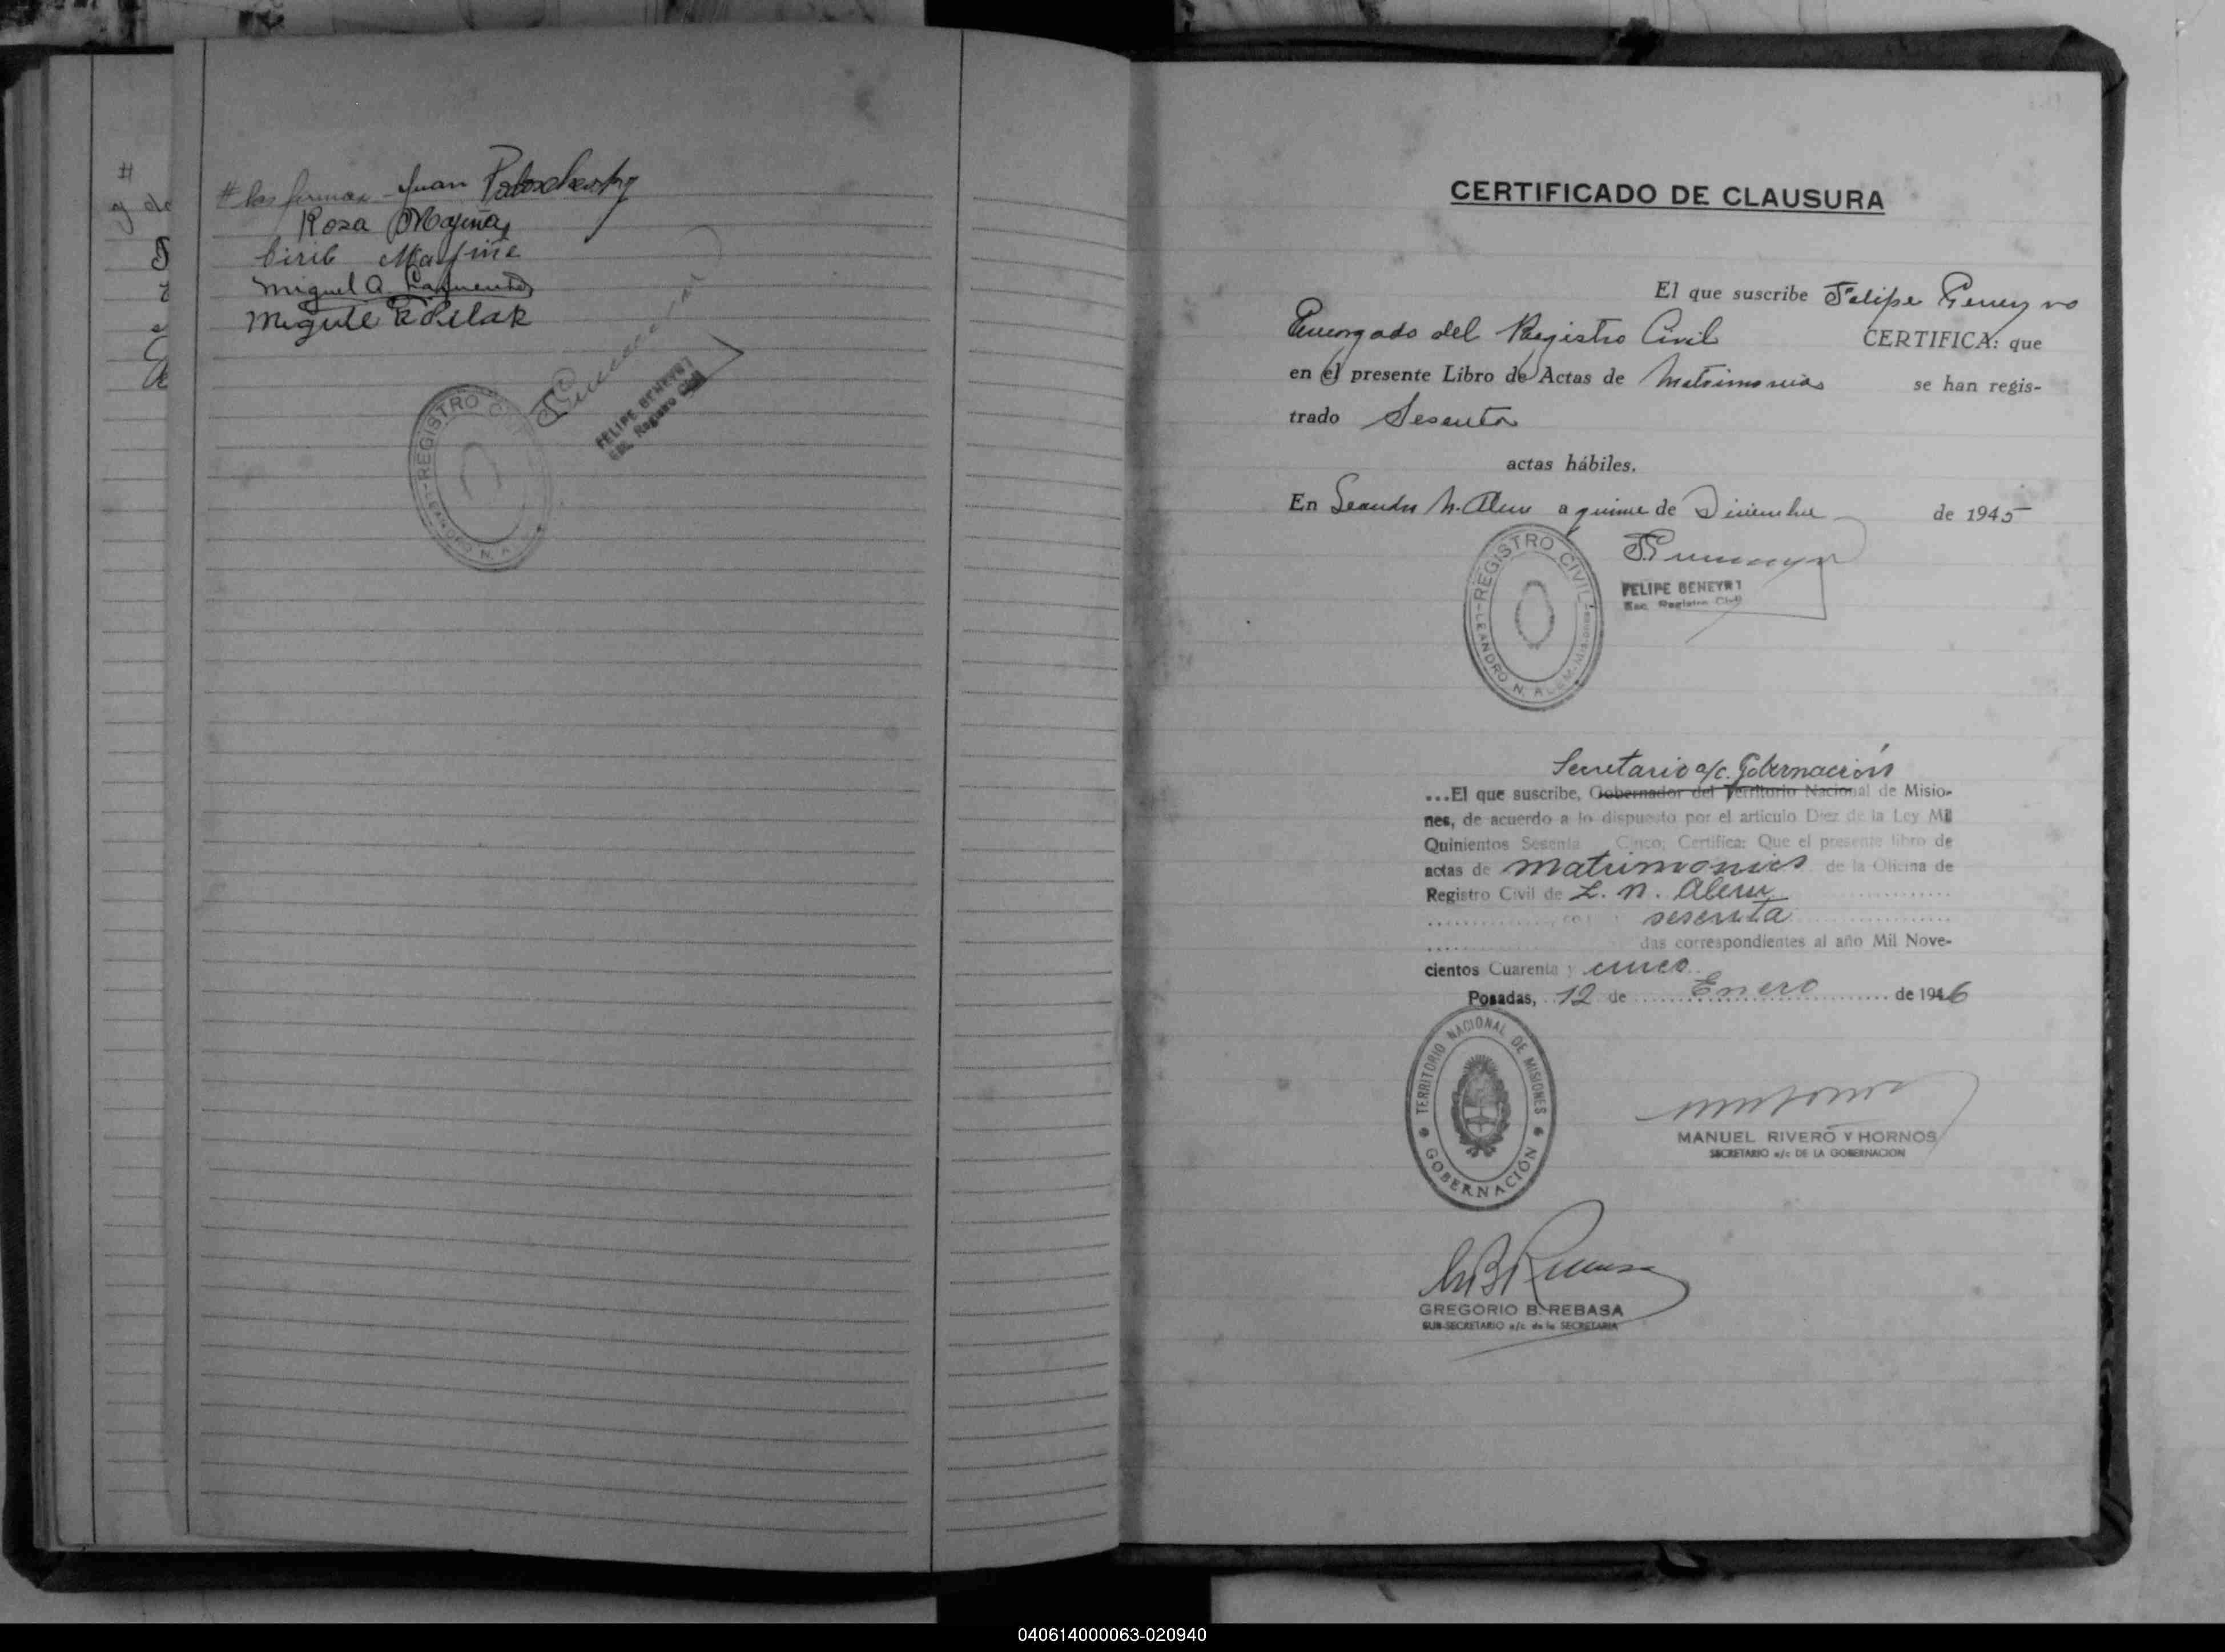 #
y de
# las firman - Juan
Rosa
Miguel A.
REGISTRO CIVIL
LEANDRO N. A
FELIPE BENEYRT
Enc. Registro Civil
CERTIFICADO DE CLAUSURA
El que suscribe Felipe
Encargado del Registro Civil CERTIFICA: que
en el presente Libro de Actas de Matrimonios se han regis-
trado Sesenta
actas hábiles.
En Leandro N. Alem a quince de Diciembre de 1945
REGISTRO CIVIL
LEANDRO N. ALEM - Misiones
FELIPE BENEYRT
Enc. Registro Civil
Secretario a/c. Gobernación
...El que suscribe, Gobernador del Territorio Nacional de Misio-
nes, de acuerdo a lo dispuesto por el artículo Diez de la Ley Mil
Quinientos Sesenta Cinco; Certifica: Que el presente libro de
actas de matrimonios de la Oficina de
Registro Civil de L. N. Alem
sesenta
das correspondientes al año Mil Nove-
cientos Cuarenta y cinco
Posadas, 12 de Enero de 1946
TERRITORIO NACIONAL DE MISIONES
GOBERNACIÓN
MANUEL RIVERO Y HORNOS
SECRETARIO a/c DE LA GOBERNACION
GREGORIO B. REBASA
SUB-SECRETARIO a/c de la SECRETARIA
040614000063-020940